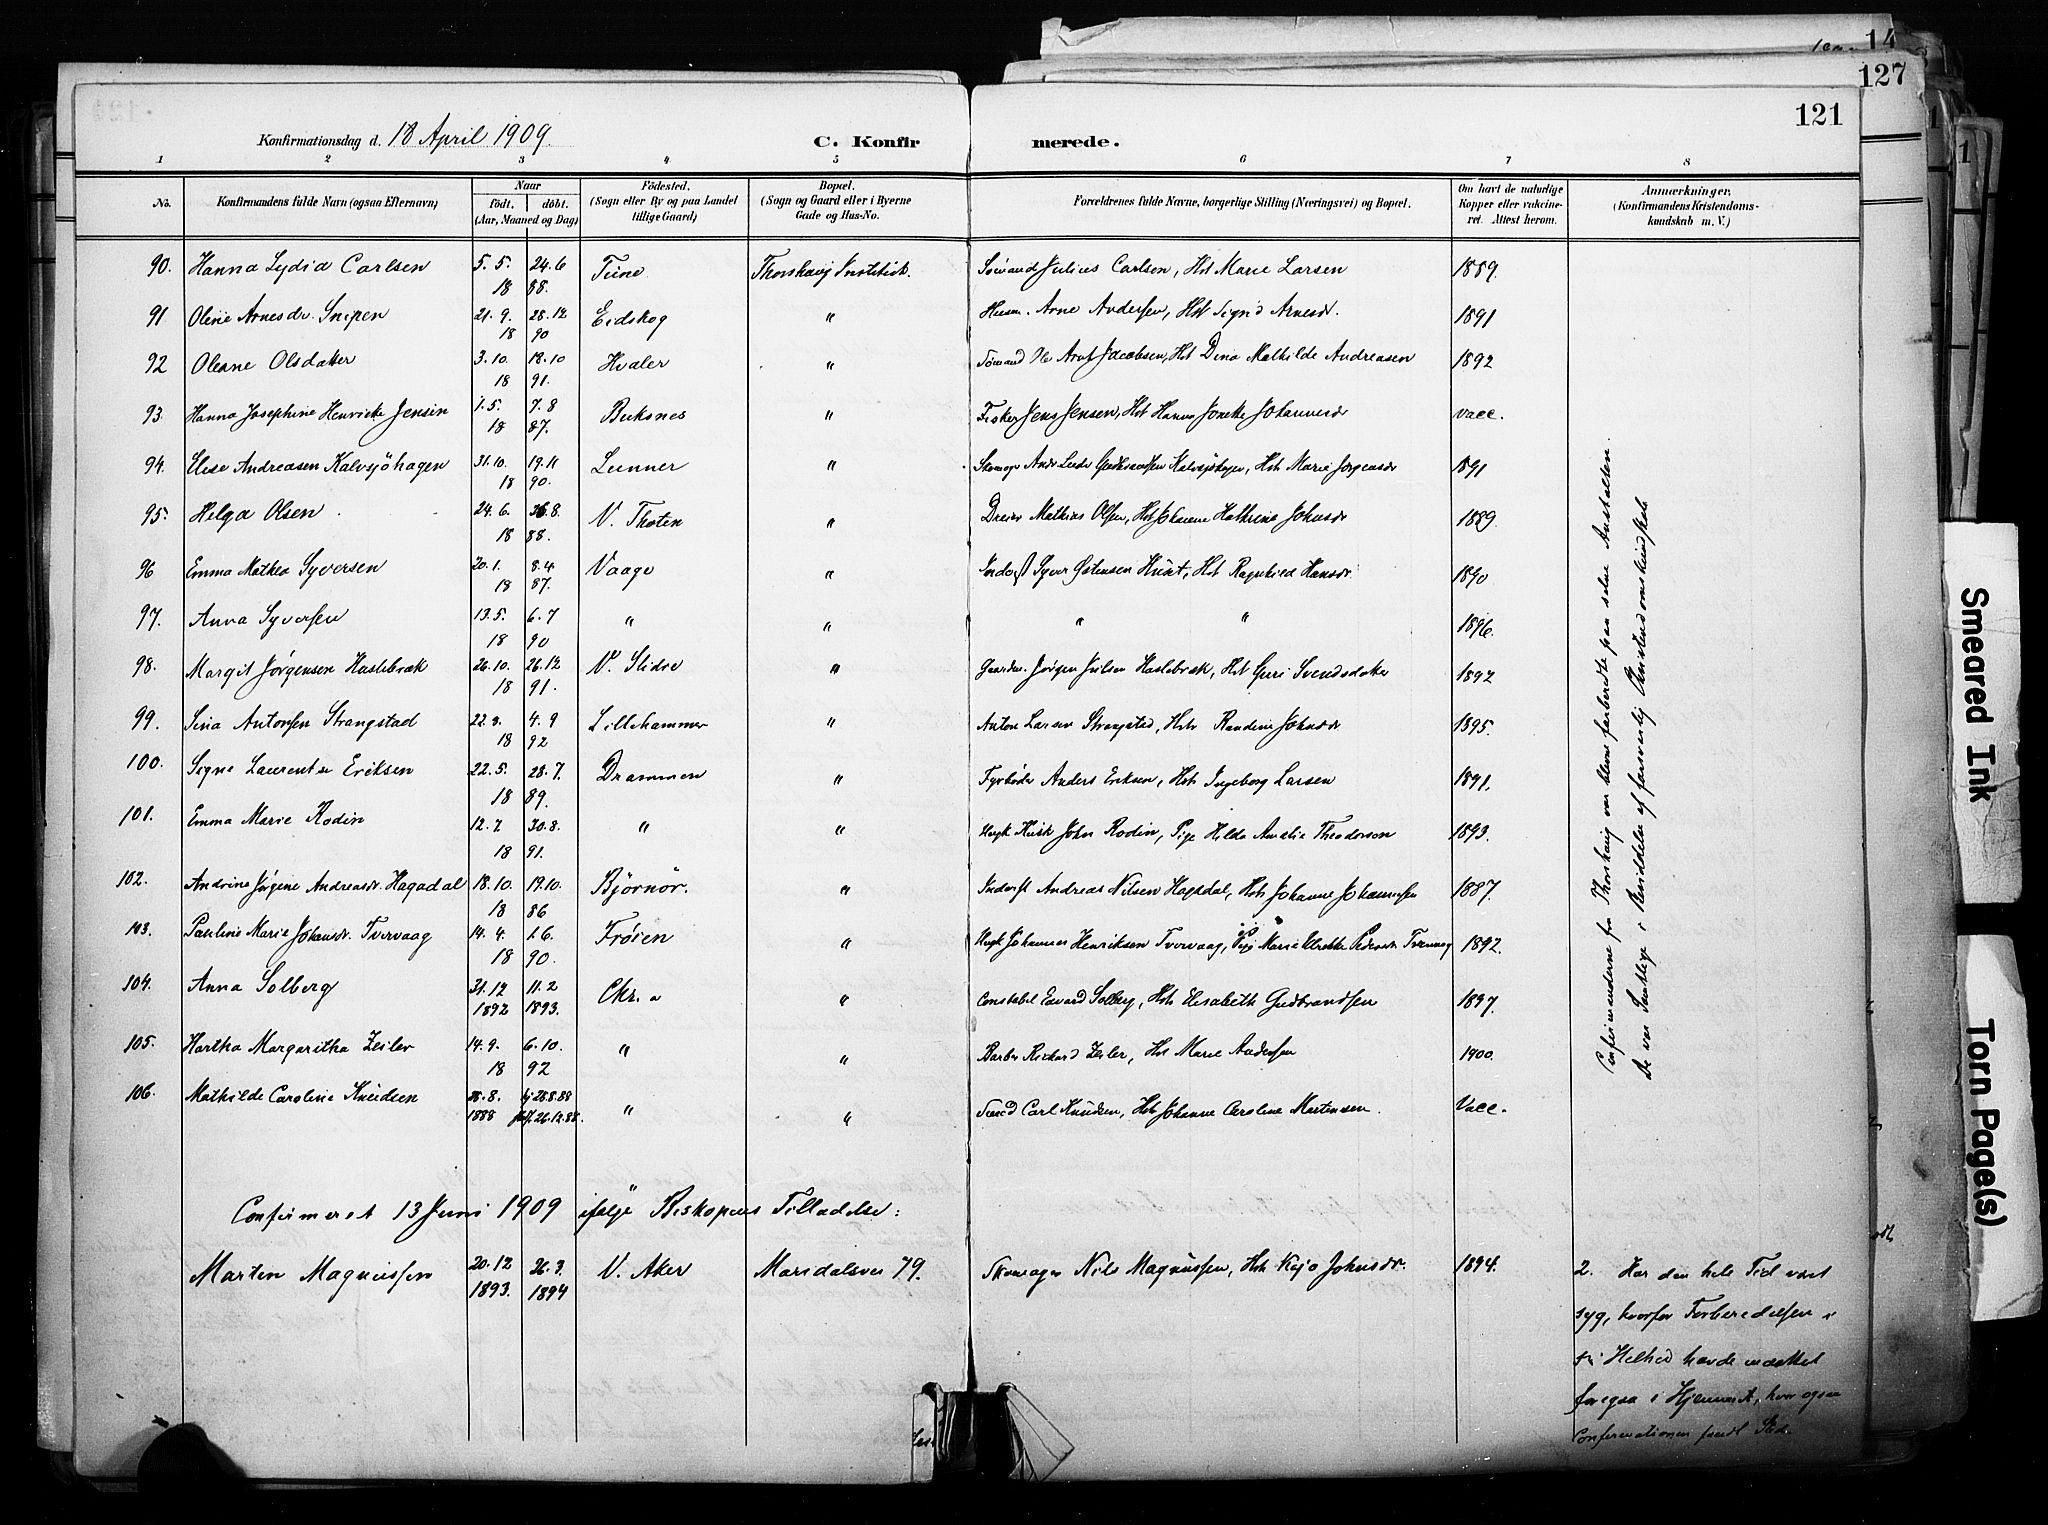 14
127
121
Konfirmationsdag d. 18 April 1909.
C. Konfirmerede.
1 2 3 4 5 6 7 8
No.
Konfirmandens fulde Navn (ogsaa Efternavn)
Naar
födt. döbt.
(Aar, Maaned og Dag)
Födested.
(Sogn eller By og paa Landet
tillige Gaard)
Bopæl.
(Sogn og Gaard eller i Byerne
Gade og Hus-No.
Forældrenes fulde Navne, borgerlige Stilling (Næringsvei) og Bopæl.
Om havt de naturlige
Kopper eller vakcine-
ret. Attest herom.
Anmærkninger,
(Konfirmandens Kristendoms-
kundskab m. V.)
90. Hanna Lydia Carlsen 5.5. 24.6 1888. Tune Thorshaug Institut. Sømand Julius Carlsen, Hst Marie Larsen 1889.
91 Oline Arnesdr. Snipen 21.9. 28.12 1890 Eidskog " Husm. Arne Andersen, Hst Sigrid Arnesdr. 1891
92 Oleane Olsdatter 3.10. 18.10 1891. Hvaler " Sømand Ole Jacobsen, Hst Dina Mathilde Andreasen 1892
93. Hanna Josephine Henricke Jensen 1.5. 7.8 1887. Buksnes " Fisker Jens Jensen, Hst Hanna Johannesdr vacc.
94. Elise Andreasen Kalvsjöhagen 31.10. 19.11 1890. Lunner " Hst Marie Jørgensdr 1891
95. Helga Olsen 24.6. 26.8. 1888. V. Thoten " Dreier Mathias Olsen, Hst Johanne Kathrine Johnsdr 1889.
96 Emma Mathea Syversen 20.1. 8.4 1887. Vaage " Inderst Syver Østensen, Hst Ragnhild Hansdr. 1890
97. Anna Syversen 13.5. 6.7 1890 " " " " 1896.
98. Margit Jørgensen Haslebræk 26.10. 26.12 1891. V. Slidre " Gaardm. Jørgen Julsen Haslebræk, Hst Guri Svendsdatter 1892
99. Sina Antonsen Strangstad 22.8. 4.9 1892 Lillehammer " Anton Larsen Strangstad, Hst Randine Johnsdr. 1895.
100. Signe Laurentse Eriksen 22.5. 28.7. 1889. Drammen " Fyrböder Anders Eriksen, Hst Ingeborg Larsen 1891.
101. Emma Marie Rodin 12.7 30.8. 1891. " " Ungk John Rodin, Pige Hilda Amalie Theodorson 1893.
102. Andrine Jørgine Andreasdr. Hagadal 18.10. 19.10. 1886 Bjørnør. " Inderst Andreas Nilsen Hagadal, Hst Johanne Johannesen 1887.
103. Pauline Marie Johansdr. Tvervaag 14.4. 1.6. 1890. Frøien " Ungk Johannes Henriksen Tvervaag, Pige Marie Ulrikke Pedersdr. Tvervaag 1892.
104. Anna Solberg 31.12 1892 11.2 1893. Chr.a " Constabel Edvard Solberg, Hst Elisabeth Gudbrandsen 1897.
105. Hartha Margaritha Zeiler 14.9. 6.10. 1892 " " Barber Rickard Zeiler, Hst Marie Andersen 1900.
106. Mathilde Caroline Knudsen 28.8. 1888 hj 28.8.88 26.12.88. " " Carl Knudsen, Hst Johanne Caroline Martensen. Vacc.
Confirmanderne fra Thorshaug var blevne forberedte paa selve Anstalten.
De var Samtlige i Besiddelse af forsvarlig Christendomskundskab
Confirmeret 13 Juni 1909 ifølge Biskopens Tilladelse:
Marten Magnussen 20.12 1893. 26.3. 1894 V. Aker Maridalsvei 79. Skomager Nils Magnussen, Hst Kaja Johnsdr. 1894.
2. Har den hele Tid vært
syg, hvorfor Forberedelsen
Helhed havde maattet
foregaa i Hjemmet, hvor ogsaa
Confirmationen fandt Sted.
Smeared Ink
Torn Page(s)